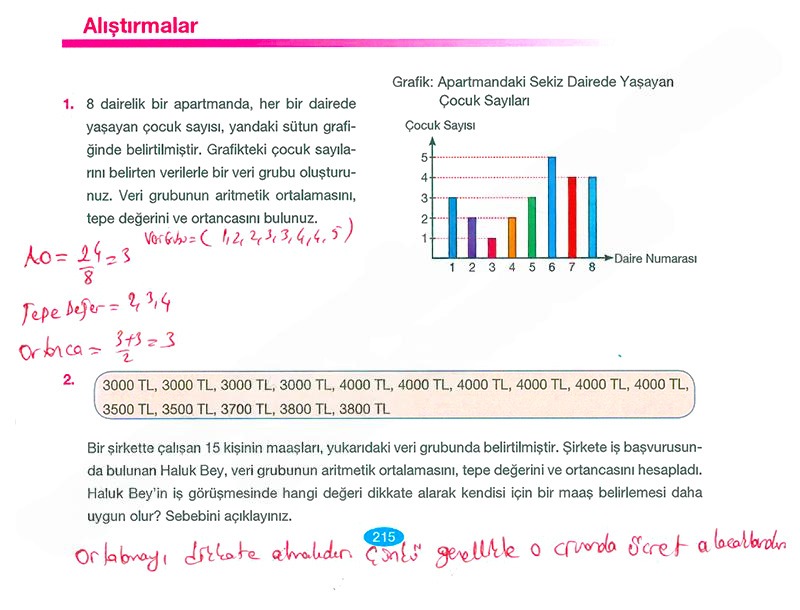 Alıştırmalar
Grafik: Apartmandaki Sekiz Dairede Yaşayan
Çocuk Sayıları
1. 8 dairelik bir apartmanda, her bir dairede
yaşayan çocuk sayısı, yandaki sütun grafi-
ğinde belirtilmiştir. Grafikteki çocuk sayıla-
rını belirten verilerle bir veri grubu oluşturu-
nuz. Veri grubunun aritmetik ortalamasını,
tepe değerini ve ortancasını bulunuz.
Çocuk Sayısı
5
4
3
2
1
1 2 3 4 5 6 7 8
Daire Numarası
( 1, 2, 2, 3, 3, 4, 4, 5 )
AO = 24/8 = 3
Tepe Değer = 2, 3, 4
Ortanca = 3+3/2 = 3
2. 3000 TL, 3000 TL, 3000 TL, 3000 TL, 4000 TL, 4000 TL, 4000 TL, 4000 TL, 4000 TL, 4000 TL,
3500 TL, 3500 TL, 3700 TL, 3800 TL, 3800 TL
Bir şirkette çalışan 15 kişinin maaşları, yukarıdaki veri grubunda belirtilmiştir. Şirkete iş başvurusun-
da bulunan Haluk Bey, veri grubunun aritmetik ortalamasını, tepe değerini ve ortancasını hesapladı.
Haluk Bey'in iş görüşmesinde hangi değeri dikkate alarak kendisi için bir maaş belirlemesi daha
uygun olur? Sebebini açıklayınız.
215
Ortalamayı dikkate almalıdır. Çünkü genellikle o civarda ücret alacaklardır